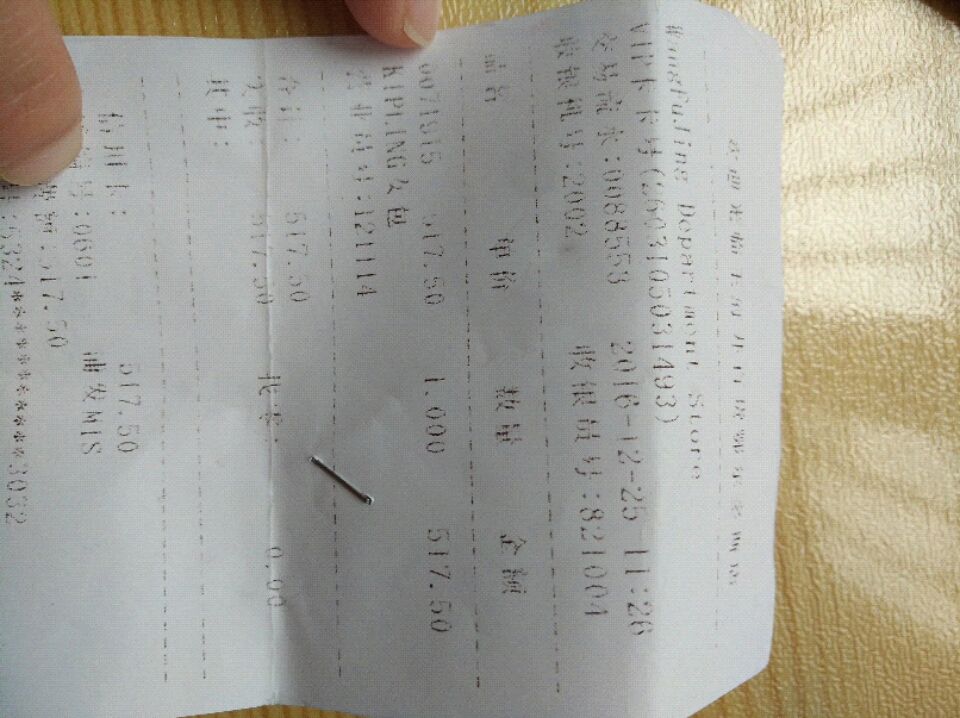 Wangfujing Department Store
VIP卡卡号(2603105031493)
交易流水:0088553 2016-12-25 11:26
收银机号:2002 收银员号:821004
商品 单价 数量 金额
0071915 517.50 1.000 517.50
KIPLING女包
营业员号:121114
合计: 517.50
实收: 517.50 找零: 0.00
其中:
信用卡: 517.50
:0601 MIS
:517.50
:5324*********3032